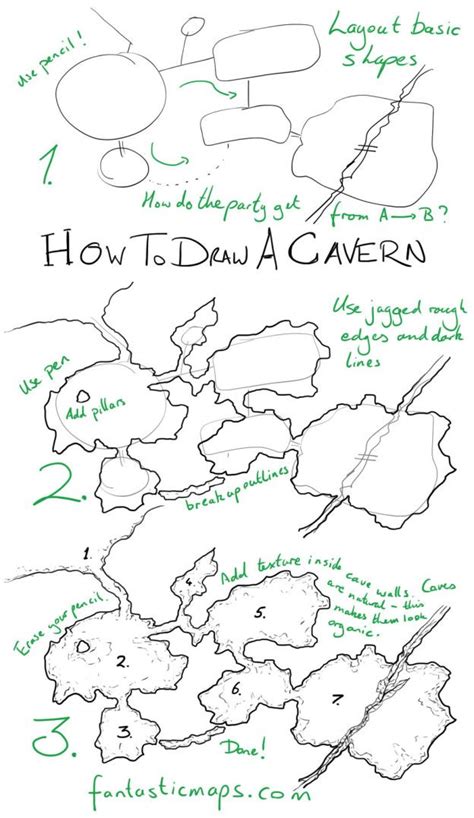 Use pencil!
Layout basic
shapes
1.
How do the party get
from A → B?
HOW TO DRAW A CAVERN
Use pen
Add pillars
Use jagged rough
edges and dark
lines
2.
break up outlines
Erase your pencil.
1.
4.
Add texture inside
cave walls. Caves
are natural - this
makes them look
organic.
2.
5.
6.
7.
3.
3.
Done!
fantasticmaps.com